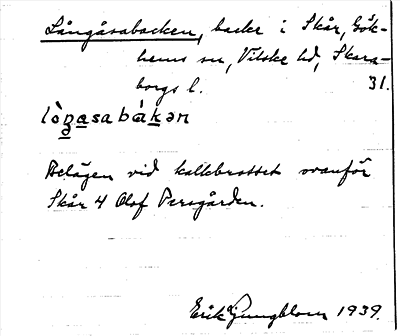 Långåsabacken, backe i Skår, Gök-
hems sn, Vilske hd, Skara-
borgs l. 31.
lòŋasabàkən
Belägen vid kalkbrottet ovanför
Skår 4 Olof Persgården.
Erik Ljungblom 1939.